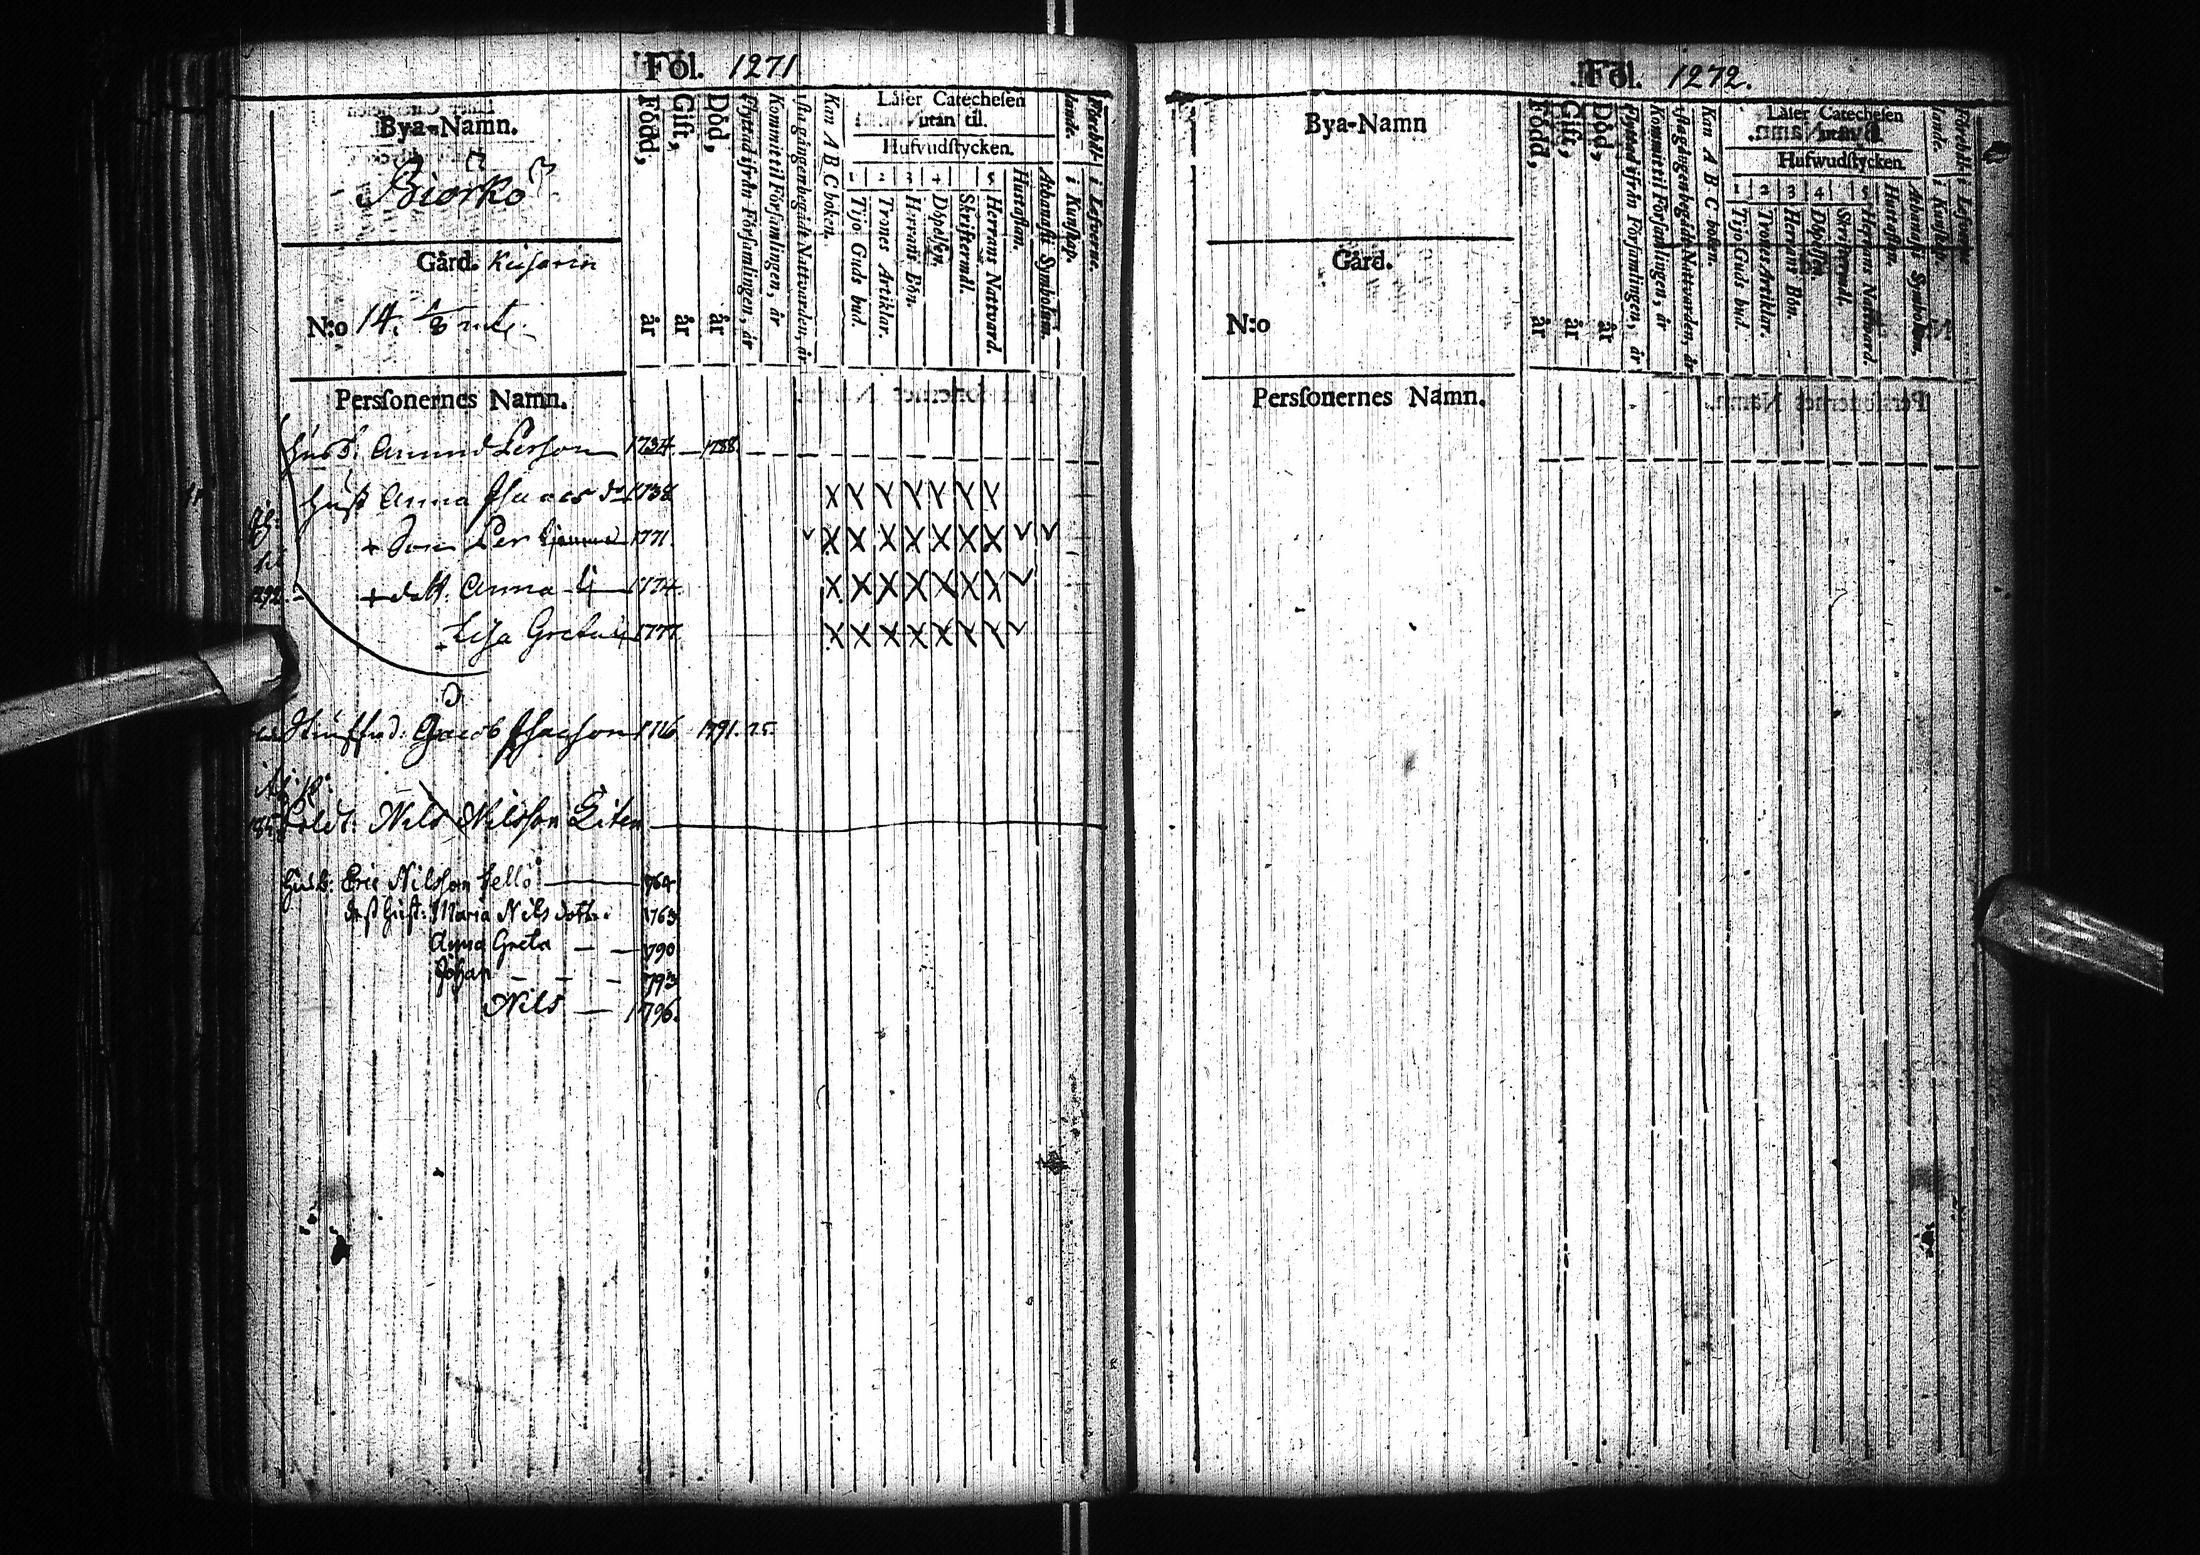 Föl. 1271
Bya-Namn.
Biörkö
Gård. Kisarin
N:o 14.
Persſonernes Namn.
Född, år
Gift, år
Död, år
Flyttad ifrån Förſamlingen, år
Kommit til Förſamlingen, år
1ſta gången begådt Nattvarden, år
Kan A B C boken.
Läſer Catecheſen
utan til.
Hufvudſtycken.
1 2 3 4 5
Tijo Guds bud.
Trones Artiklar.
Herrans Bön.
Döpelſen.
Skriftermål.
Herrans Nattvard.
Huſtaflan.
Athanaſii Symbolum.
i Kunſkap.
i Lefverne.
Husb: Amund Perſon 1734. 1788.
Huſt Anna Iſaacs dr 1738
+ Son Per 1771.
+ dott. Anna 1774.
+ Liſa Greta 1777
1792
Jacob Iſacſon 1716 1791. 75.
Sold: Nils Nilsſon Liten
Husb: Eric Nilsſon Sellö 1764
deſſ Huſt: Maria Nils dotter 1763
Anna Greta 1790
Johan 1793
Nils 1796.
Föl. 1272.
Bya-Namn
Gård.
N:o
Persſonernes Namn.
Född, år
Gift, år
Död, år
Flyttad ifrån Förſamlingen, år
Kommit til Förſamlingen, år
1ſta gången begådt Nattvarden, år
Kan A B C boken.
Läſer Catecheſen
utan til.
Hufwudſtycken.
1 2 3 4 5
Tijo Guds bud.
Trones Artiklar.
Herrans Bön.
Döpelſen.
Skriftermål.
Herrans Nattvard.
Huſtaflan.
Athanaſii Symbolum.
i Kunſkap.
i Lefverne